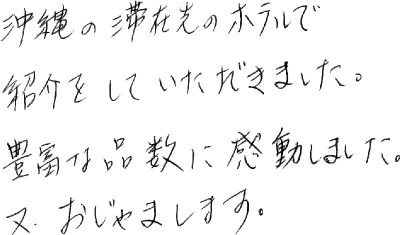 沖縄の滞在先のホテルで
紹介をしていただきました。
豊富な品数に感動しました。
又、おじゃまします。